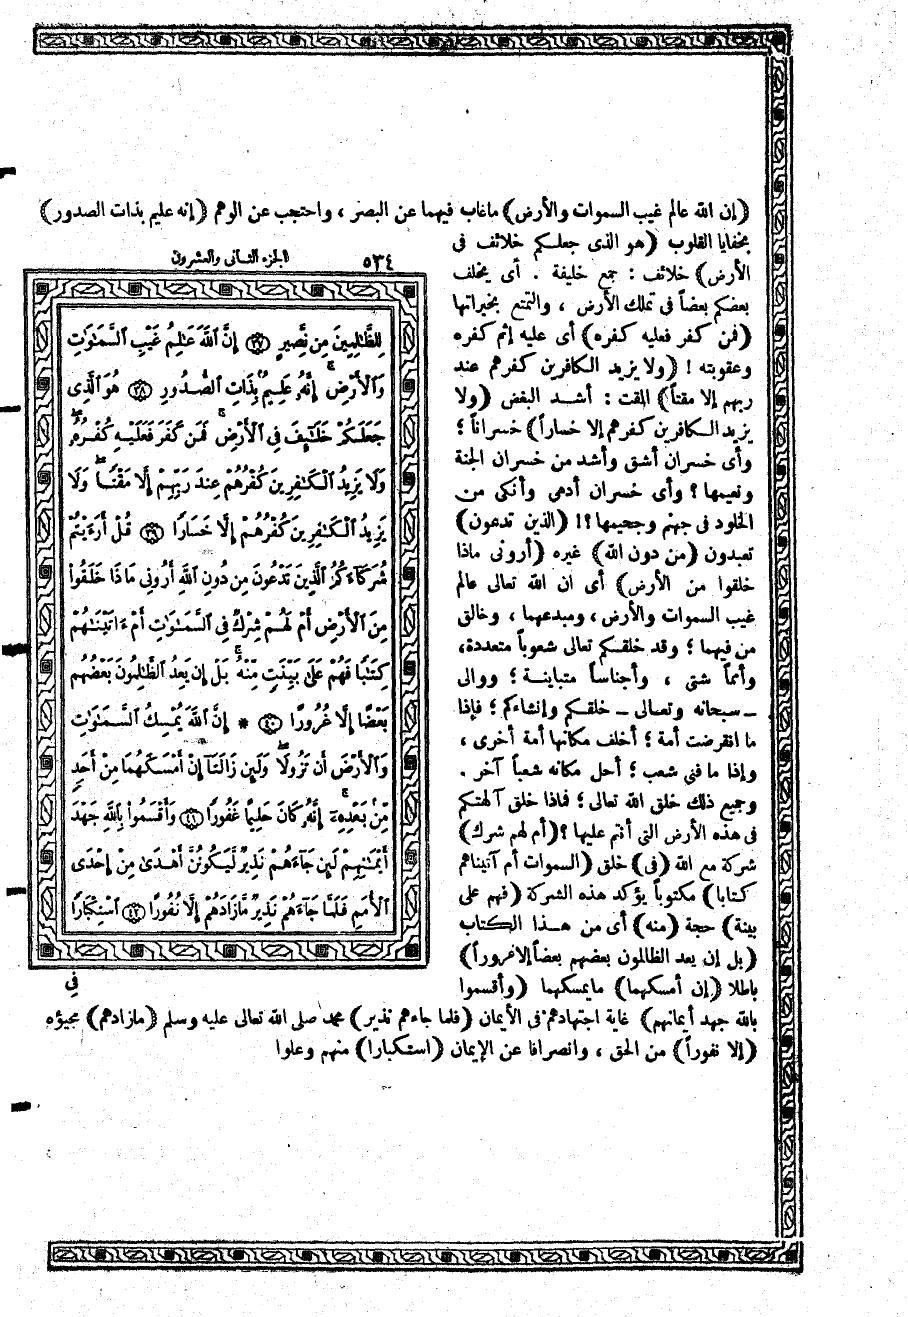 (إن الله عالم غيب السموات والأرض) ماغاب فيهما عن البصر ، واحتجب عن الوهم (إنه عليم بذات الصدور)
بخفايا القلوب (هو الذى جعلكم خلائف فى
الأرض) خلائف : جمع خليفة . أى يخلف
بعضكم بعضاً فى تملك الأرض ، والتمتع بخيراتها
(فمن كفر فعليه كفره) أى عليه إثم كفره
وعقوبته ! (ولا يزيد الكافرين كفرهم عند
ربهم إلا مقتاً) المقت : أشد البغض (ولا
يزيد الكافرين كفرهم إلا خساراً) خسراناً ؛
وأى خسران أشق وأشد من خسران الجنة
ونعيمها ؟ وأى خسران أدهى وأنكى من
الخلود فى جهنم وجحيمها ؟! (الذين تدعون)
تعبدون (من دون الله) غيره (أرونى ماذا
خلقوا من الأرض) أى ان الله تعالى عالم
غيب السموات والأرض ، ومبدعهما ، وخالق
من فيهما ؛ وقد خلقكم تعالى شعوباً متعددة،
وأمماً شتى ، وأجناساً متباينة ؛ ووالى
ـ سبحانه وتعالى ـ خلقكم وإنشاءكم ؛ فإذا
ما انقرضت أمة ؛ أخلف مكانها أمة أخرى ،
وإذا ما فنى شعب ؛ أحل مكانه شعباً آخر .
وجميع ذلك خلق الله تعالى ؛ فماذا خلق آلهتكم
فى هذه الأرض التى أنتم عليها ؟ (أم لهم شرك)
شركة مع الله (فى) خلق (السموات أم آتيناهم
كتابا) مكتوباً يؤكد هذه الشركة (فهم على
بينة) حجة (منه) أى من هذا الكتاب
(بل إن يعد الظالمون بعضهم بعضاً إلا غروراً)
باطلا (إن أمسكهما) مايمسكهما (وأقسموا
بالله جهد أيمانهم) غاية اجتهادهم فى الأيمان (فلما جاءهم نذير) محمد صلى الله تعالى عليه وسلم (مازادهم) مجيؤه
(إلا نفوراً) من الحق ، وانصرافا عن الإيمان (استكبارا) منهم وعلوا
٥٣٤ الجزء الثانى والعشرون
لِلظَّٰلِمِينَ مِن نَّصِيرٍ ۝٣٧ إِنَّ ٱللَّهَ عَٰلِمُ غَيْبِ ٱلسَّمَٰوَٰتِ
وَٱلْأَرْضِ ۚ إِنَّهُۥ عَلِيمُۢ بِذَاتِ ٱلصُّدُورِ ۝٣٨ هُوَ ٱلَّذِى
جَعَلَكُمْ خَلَٰٓئِفَ فِى ٱلْأَرْضِ ۚ فَمَن كَفَرَ فَعَلَيْهِ كُفْرُهُۥ ۖ
وَلَا يَزِيدُ ٱلْكَٰفِرِينَ كُفْرُهُمْ عِندَ رَبِّهِمْ إِلَّا مَقْتًا ۖ وَلَا
يَزِيدُ ٱلْكَٰفِرِينَ كُفْرُهُمْ إِلَّا خَسَارًا ۝٣٩ قُلْ أَرَءَيْتُمْ
شُرَكَآءَكُمُ ٱلَّذِينَ تَدْعُونَ مِن دُونِ ٱللَّهِ أَرُونِى مَاذَا خَلَقُوا۟
مِنَ ٱلْأَرْضِ أَمْ لَهُمْ شِرْكٌ فِى ٱلسَّمَٰوَٰتِ أَمْ ءَاتَيْنَٰهُمْ
كِتَٰبًا فَهُمْ عَلَىٰ بَيِّنَتٍ مِّنْهُ ۚ بَلْ إِن يَعِدُ ٱلظَّٰلِمُونَ بَعْضُهُم
بَعْضًا إِلَّا غُرُورًا ۝٤٠ * إِنَّ ٱللَّهَ يُمْسِكُ ٱلسَّمَٰوَٰتِ
وَٱلْأَرْضَ أَن تَزُولَا ۚ وَلَئِن زَالَتَآ إِنْ أَمْسَكَهُمَا مِنْ أَحَدٍ
مِّنۢ بَعْدِهِۦٓ ۚ إِنَّهُۥ كَانَ حَلِيمًا غَفُورًا ۝٤١ وَأَقْسَمُوا۟ بِٱللَّهِ جَهْدَ
أَيْمَٰنِهِمْ لَئِن جَآءَهُمْ نَذِيرٌ لَّيَكُونُنَّ أَهْدَىٰ مِنْ إِحْدَى
ٱلْأُمَمِ فَلَمَّا جَآءَهُمْ نَذِيرٌ مَّازَادَهُمْ إِلَّا نُفُورًا ۝٤٢ ٱسْتِكْبَارًا
فِى